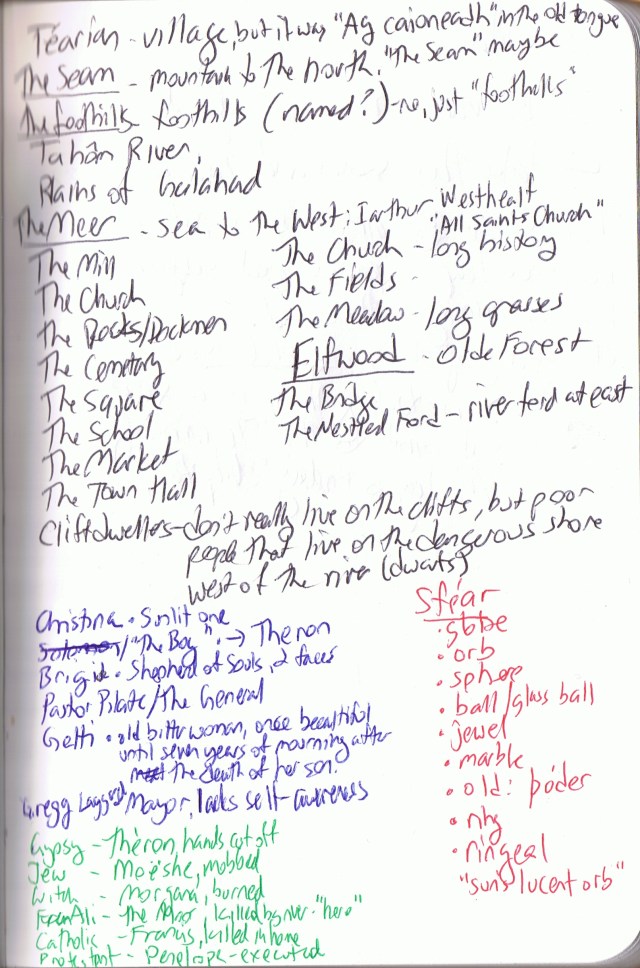 Téarian - village, but it was "Ag caioneadh" in the old tongue
The Seam - mountain to the north. "The Seam" maybe
The foothills foothills (named?) - no, just "foothills"
Tahân River,
Plains of Galahad
The Meer - sea to the West; Iarthur Westhealf
The Mill
The Church
The Docks/Dockmen
The Cemetary
The Square
The School
The Market
The Town Hall
"All Saints Church"
The Church - long history
The Fields -
The Meadow - long grasses
Elfwood - Olde Forest
The Bridge
The Nestled Ford - river ford at east
Cliftdwellers - don't really live on the clifts, but poor
people that live on the dangerous shore
west of the river (dwarfs)
Christina - Sunlit one
/"The Boy" → Theron
Brigid - Shepherd of Souls, 2 faces
Pastor Pilate/The General
Getti - old bitter woman, once beautiful
until seven years of mourning after
the death of her son.
Gregg Mayor, lacks self-awareness
Gypsy - Theron, hands cut off
Jew - Moëshe, mobbed
Witch - Morgana, burned
- The , killed by river - "hero"
Catholic - Francis, killed in home
Protestant - Penelope - executed
Sféar
• globe
• orb
• sphere
• ball/glass ball
• jewel
• marble
• old: þóder
•
• ringeal
"sun's lucent orb"